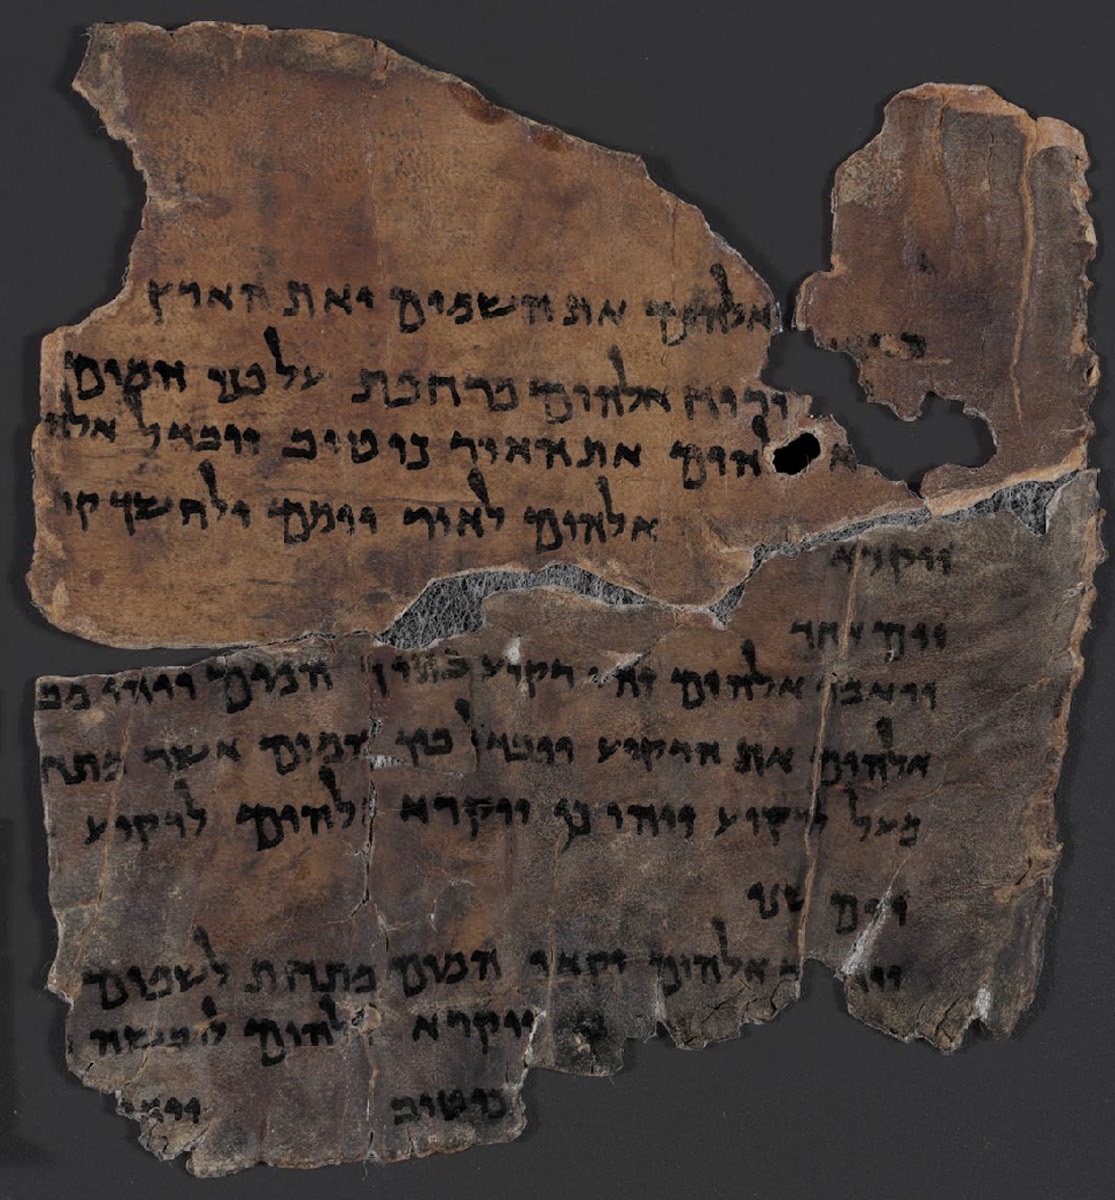 אלהים את השמים ואת הארץ
ורוח אלהים מרחפת על פני המים
אלהים את האור כי טוב ויבדל אלהי
ויקרא אלהים לאור יומם ולחשך קר
יום אחד
ויאמר אלהים יהי רקיע בתוך המים ויהי מב
אלהים את הרקיע ויבדל בין המים אשר מתח
מעל לרקיע ויהי כן ויקרא אלהים לרקיע
יום שני
ויאמר אלהים יקוו המים מתחת לשמים
ויקרא אלהים ליבשה
כי טוב